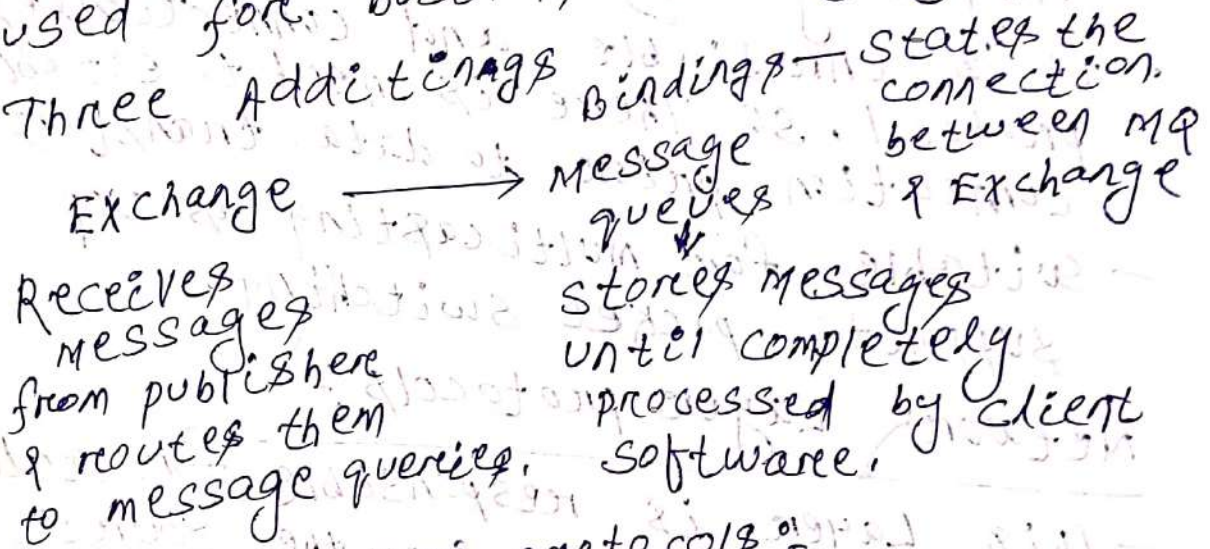 used for.
Three Additings
Bindings — states the
connection
between MQ
& Exchange
Exchange ⟶ Message
queues
Receives
messages
from publisher
& routes them
to message queries.
↓
stores messages
until completely
processed by client
software.